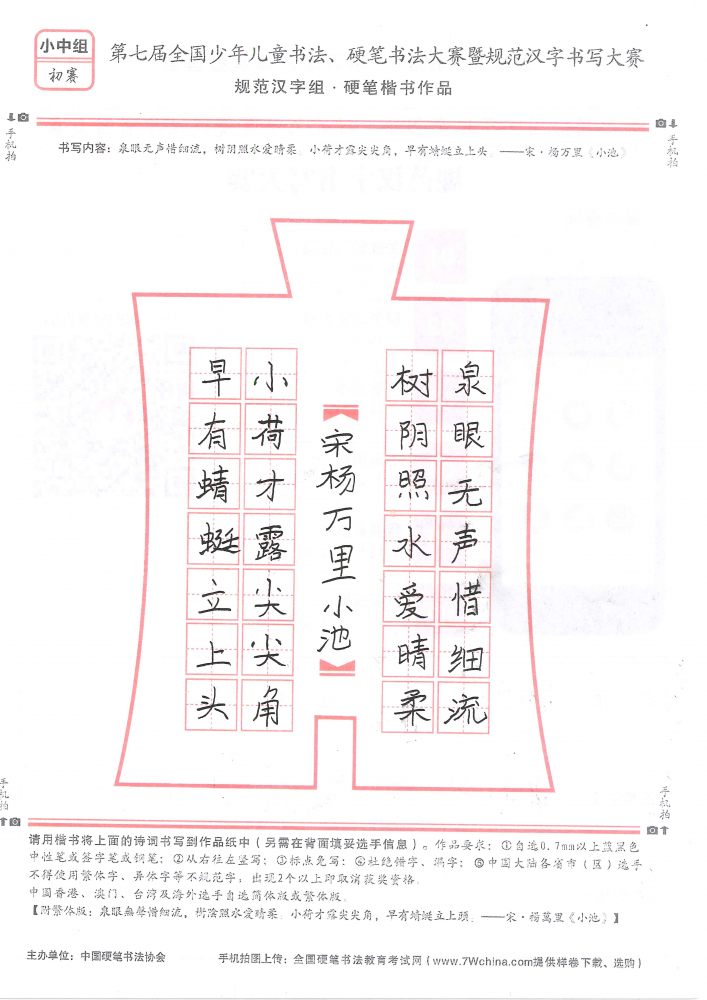 小中组
初赛
第七届全国少年儿童书法、硬笔书法大赛暨规范汉字书写大赛
规范汉字组·硬笔楷书作品
手机拍
手机拍
书写内容：泉眼无声惜细流，树阴照水爱晴柔。小荷才露尖尖角，早有蜻蜓立上头。——宋·杨万里《小池》
泉眼无声惜细流
树阴照水爱晴柔
宋杨万里小池
小荷才露尖尖角
早有蜻蜓立上头
手机拍
手机拍
请用楷书将上面的诗词书写到作品纸中（另需在背面填妥选手信息）。作品要求：①自选0.7mm以上蓝黑色
中性笔或签字笔或钢笔；②从右往左竖写；③标点免写；④杜绝错字、漏字；⑤中国大陆各省市（区）选手，
不得使用繁体字、异体字等不规范字，出现2个以上即取消获奖资格。
中国香港、澳门、台湾及海外选手自选简体版或繁体版。
【附繁体版：泉眼無聲惜細流，樹陰照水愛晴柔。小荷才露尖尖角，早有蜻蜓立上頭。——宋·楊萬里《小池》】
主办单位：中国硬笔书法协会
手机拍图上传：全国硬笔书法教育考试网（www.7Wchina.com提供样卷下载、选购）